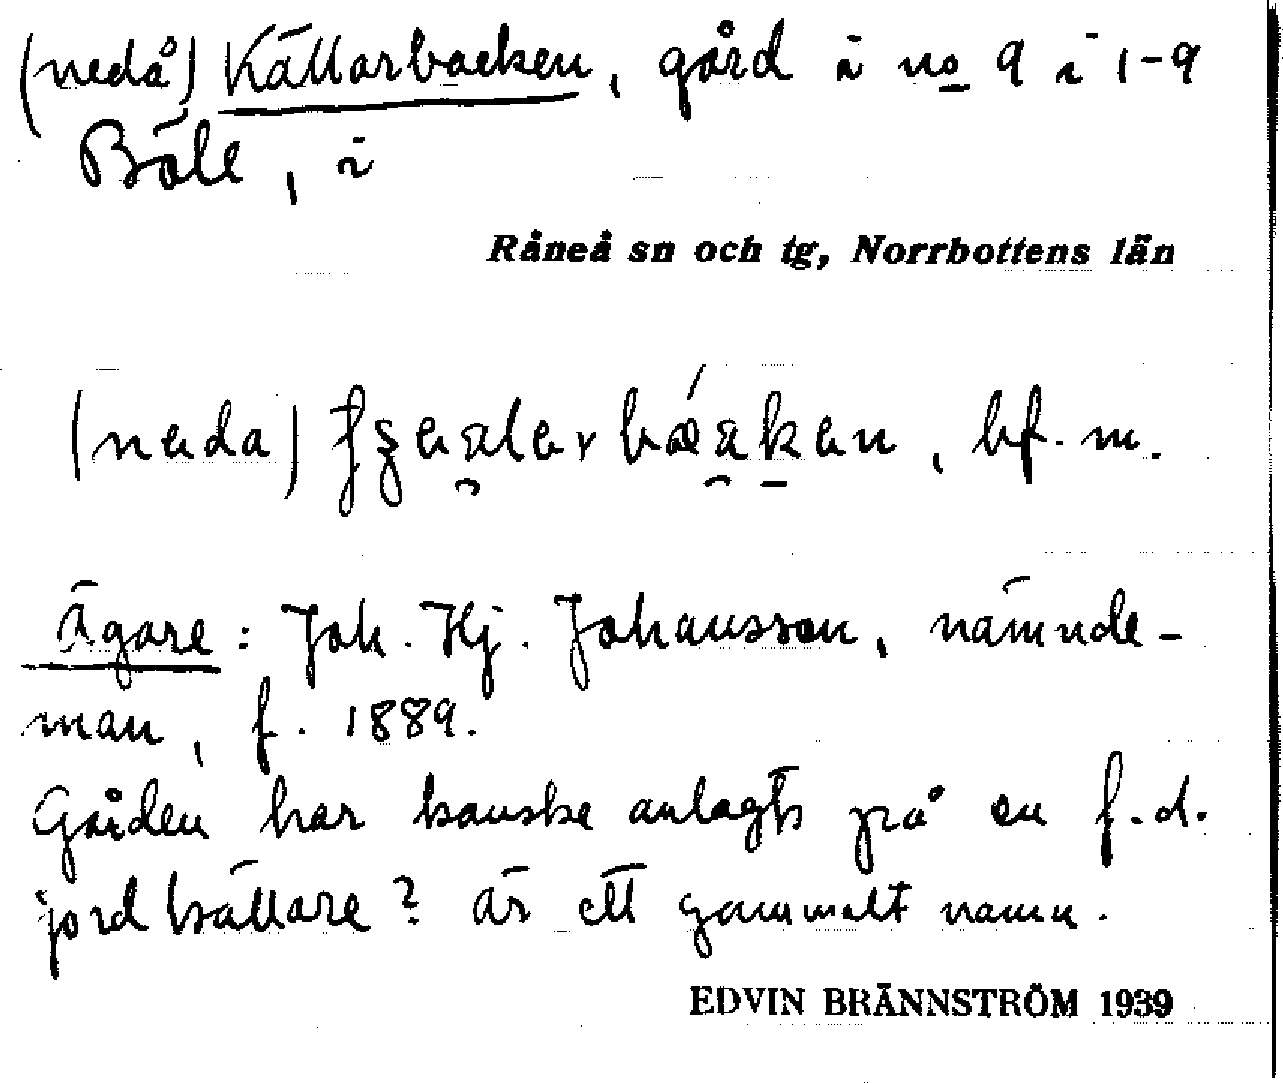 (nedå) Källarbacken, gård å no 9 i 1-9
Böle, i
Råneå sn och tg, Norrbottens län
(nada) bf. m.
Ägare: Joh. Hj. Johansson, nämnde-
man, f. 1889.
Gården har kanske anlagts på en f.d.
jordkällare? är ett gammalt namn.
EDVIN BRÄNNSTRÖM 1939